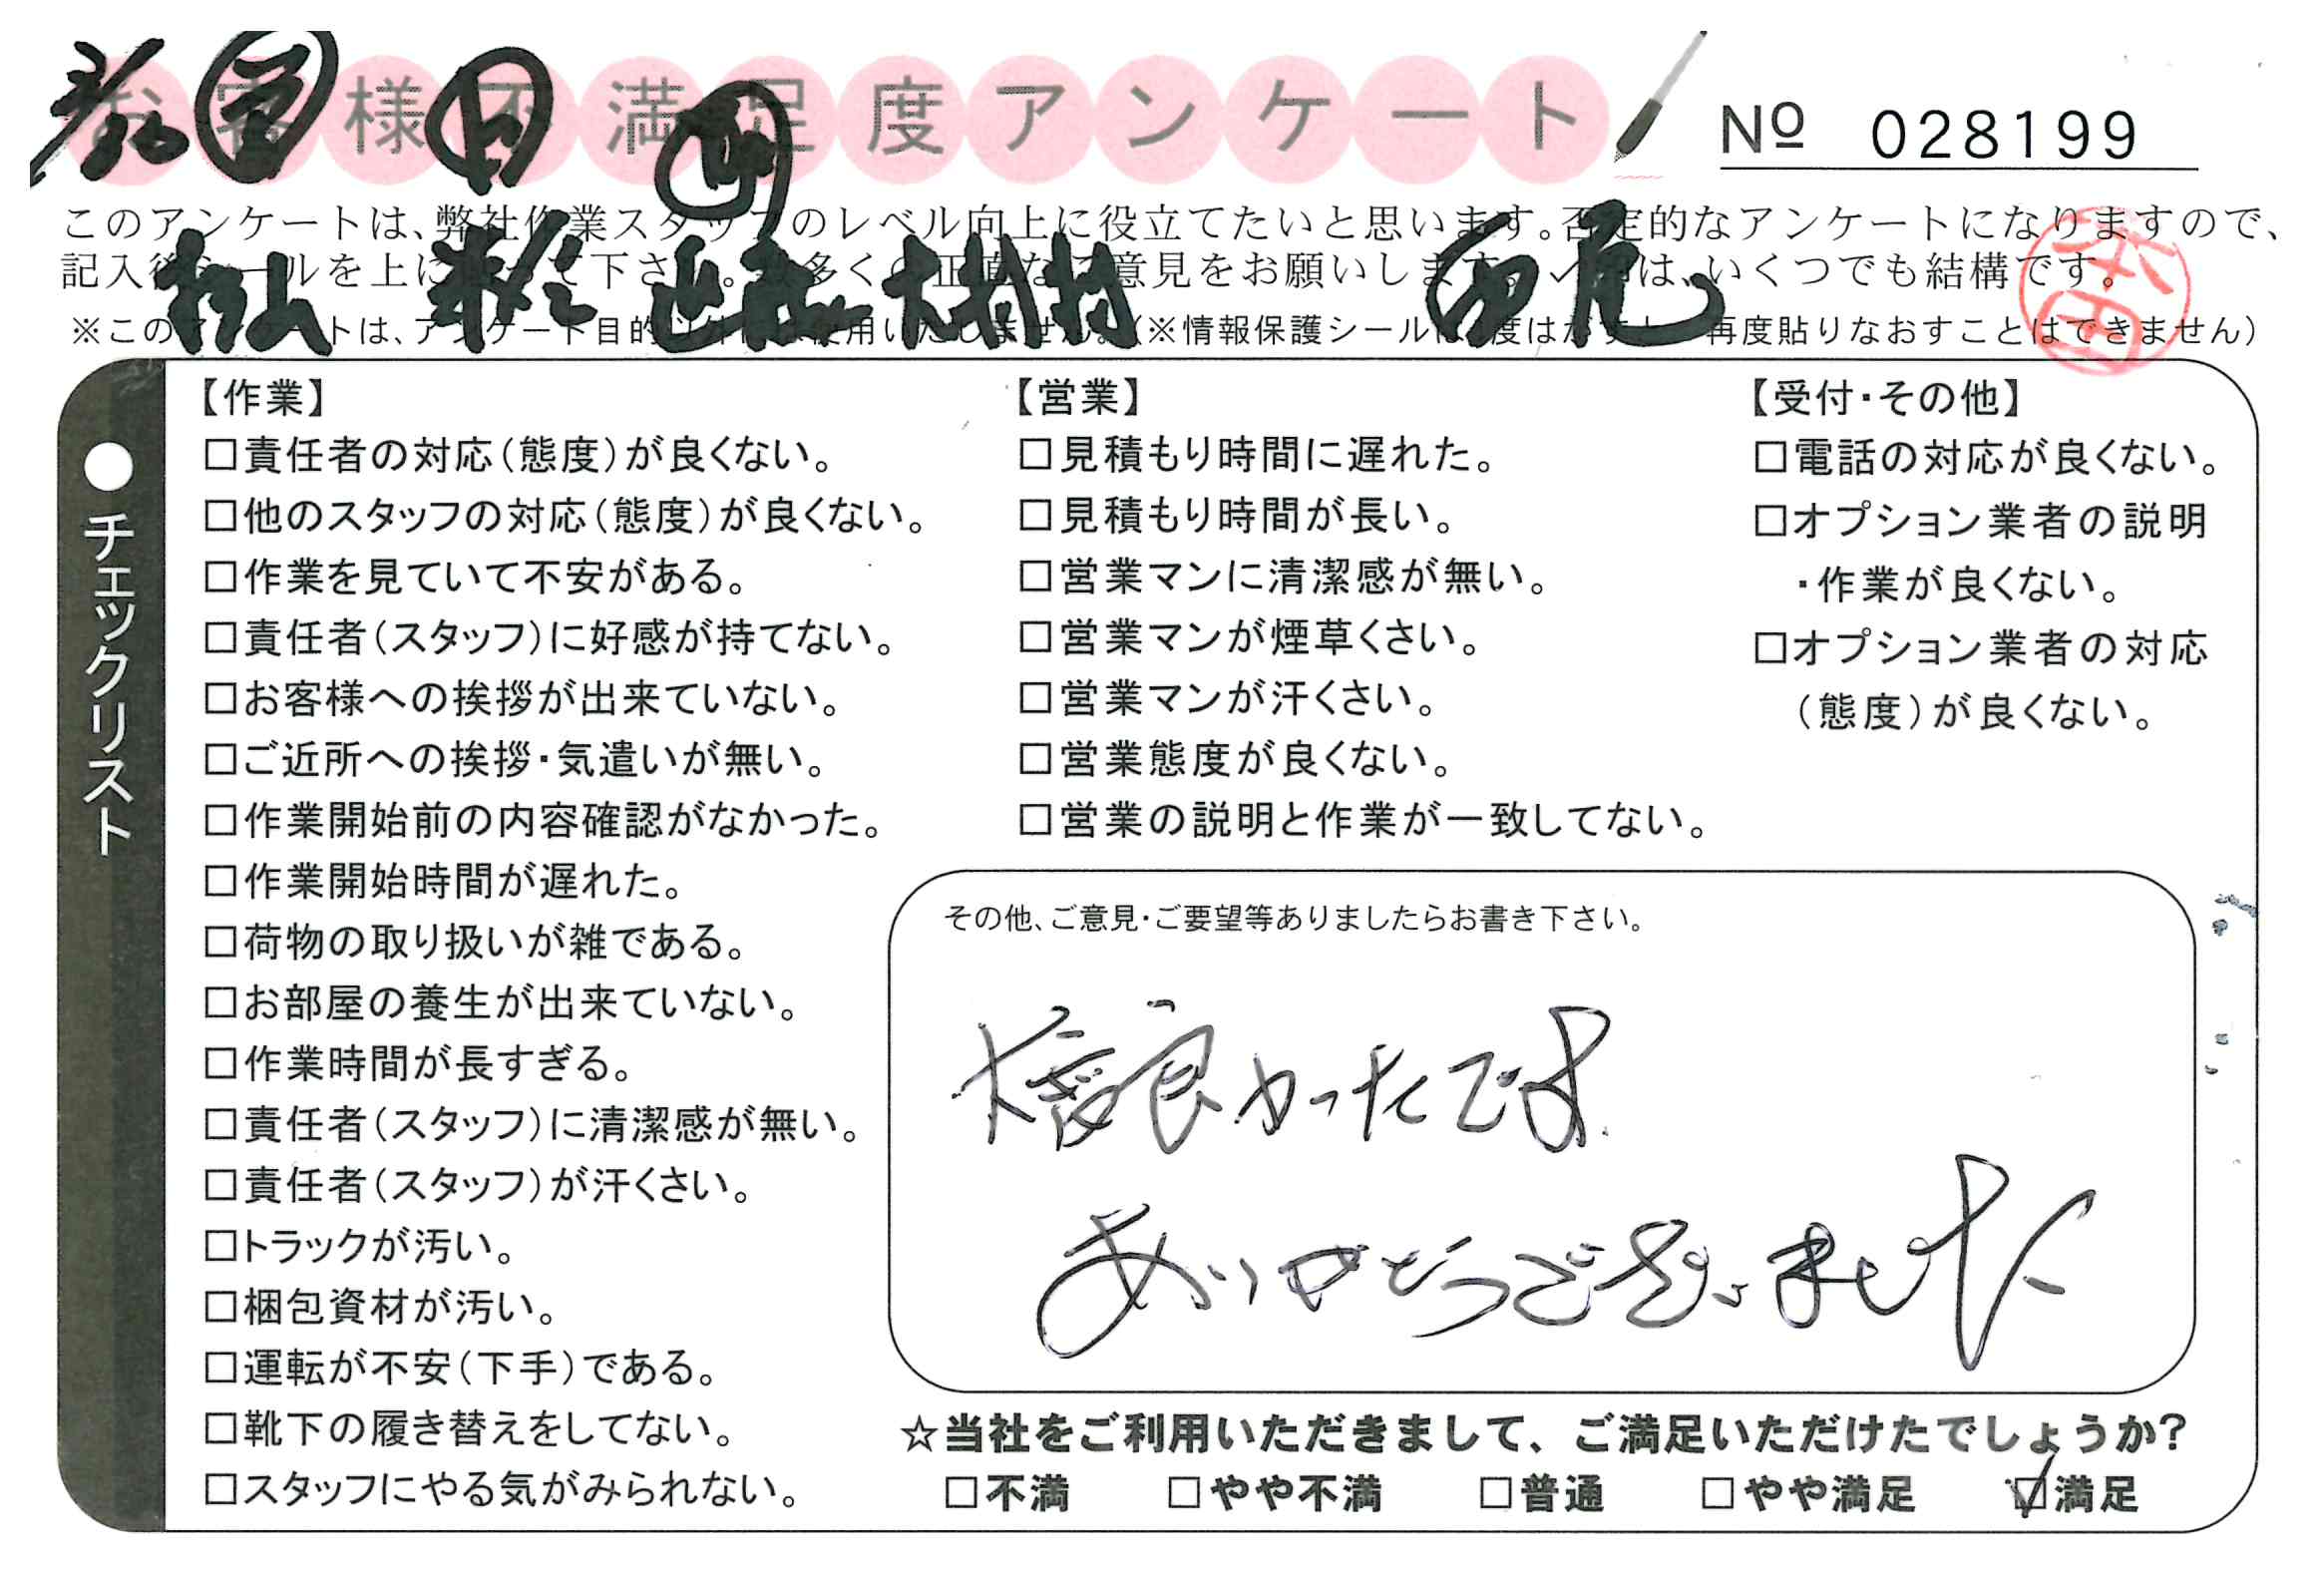 お客様不満足度アンケート
№ 028199
このアンケートは、弊社作業スタッフのレベル向上に役立てたいと思います。否定的なアンケートになりますので、
記入後シールを上に貼って下さい。数多くの正直なご意見をお願いします。✓印は、いくつでも結構です。
※このアンケートは、アンケート目的以外には使用いたしません。(※情報保護シールは1度はがすと、再度貼りなおすことはできません)
松山 大村 西尾
●チェックリスト
【作業】
□責任者の対応(態度)が良くない。
□他のスタッフの対応(態度)が良くない。
□作業を見ていて不安がある。
□責任者(スタッフ)に好感が持てない。
□お客様への挨拶が出来ていない。
□ご近所への挨拶・気遣いが無い。
□作業開始前の内容確認がなかった。
□作業開始時間が遅れた。
□荷物の取り扱いが雑である。
□お部屋の養生が出来ていない。
□作業時間が長すぎる。
□責任者(スタッフ)に清潔感が無い。
□責任者(スタッフ)が汗くさい。
□トラックが汚い。
□梱包資材が汚い。
□運転が不安(下手)である。
□靴下の履き替えをしてない。
□スタッフにやる気がみられない。
【営業】
□見積もり時間に遅れた。
□見積もり時間が長い。
□営業マンに清潔感が無い。
□営業マンが煙草くさい。
□営業マンが汗くさい。
□営業態度が良くない。
□営業の説明と作業が一致してない。
【受付・その他】
□電話の対応が良くない。
□オプション業者の説明
・作業が良くない。
□オプション業者の対応
(態度)が良くない。
その他、ご意見・ご要望等ありましたらお書き下さい。
大変良かったです
ありがとうございました
☆当社をご利用いただきまして、ご満足いただけたでしょうか?
□不満 □やや不満 □普通 □やや満足 ☑満足